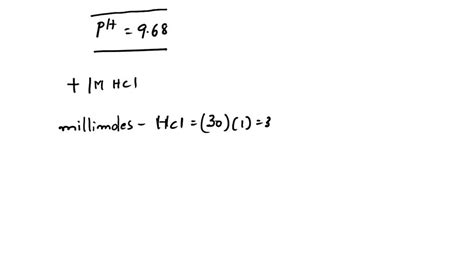 PH = 9.68
+ 1M HCl
millimoles - HCl = (30)(1) = 3